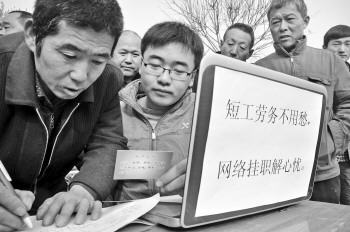 短工劳务不用愁，
网络挂职解心忧。